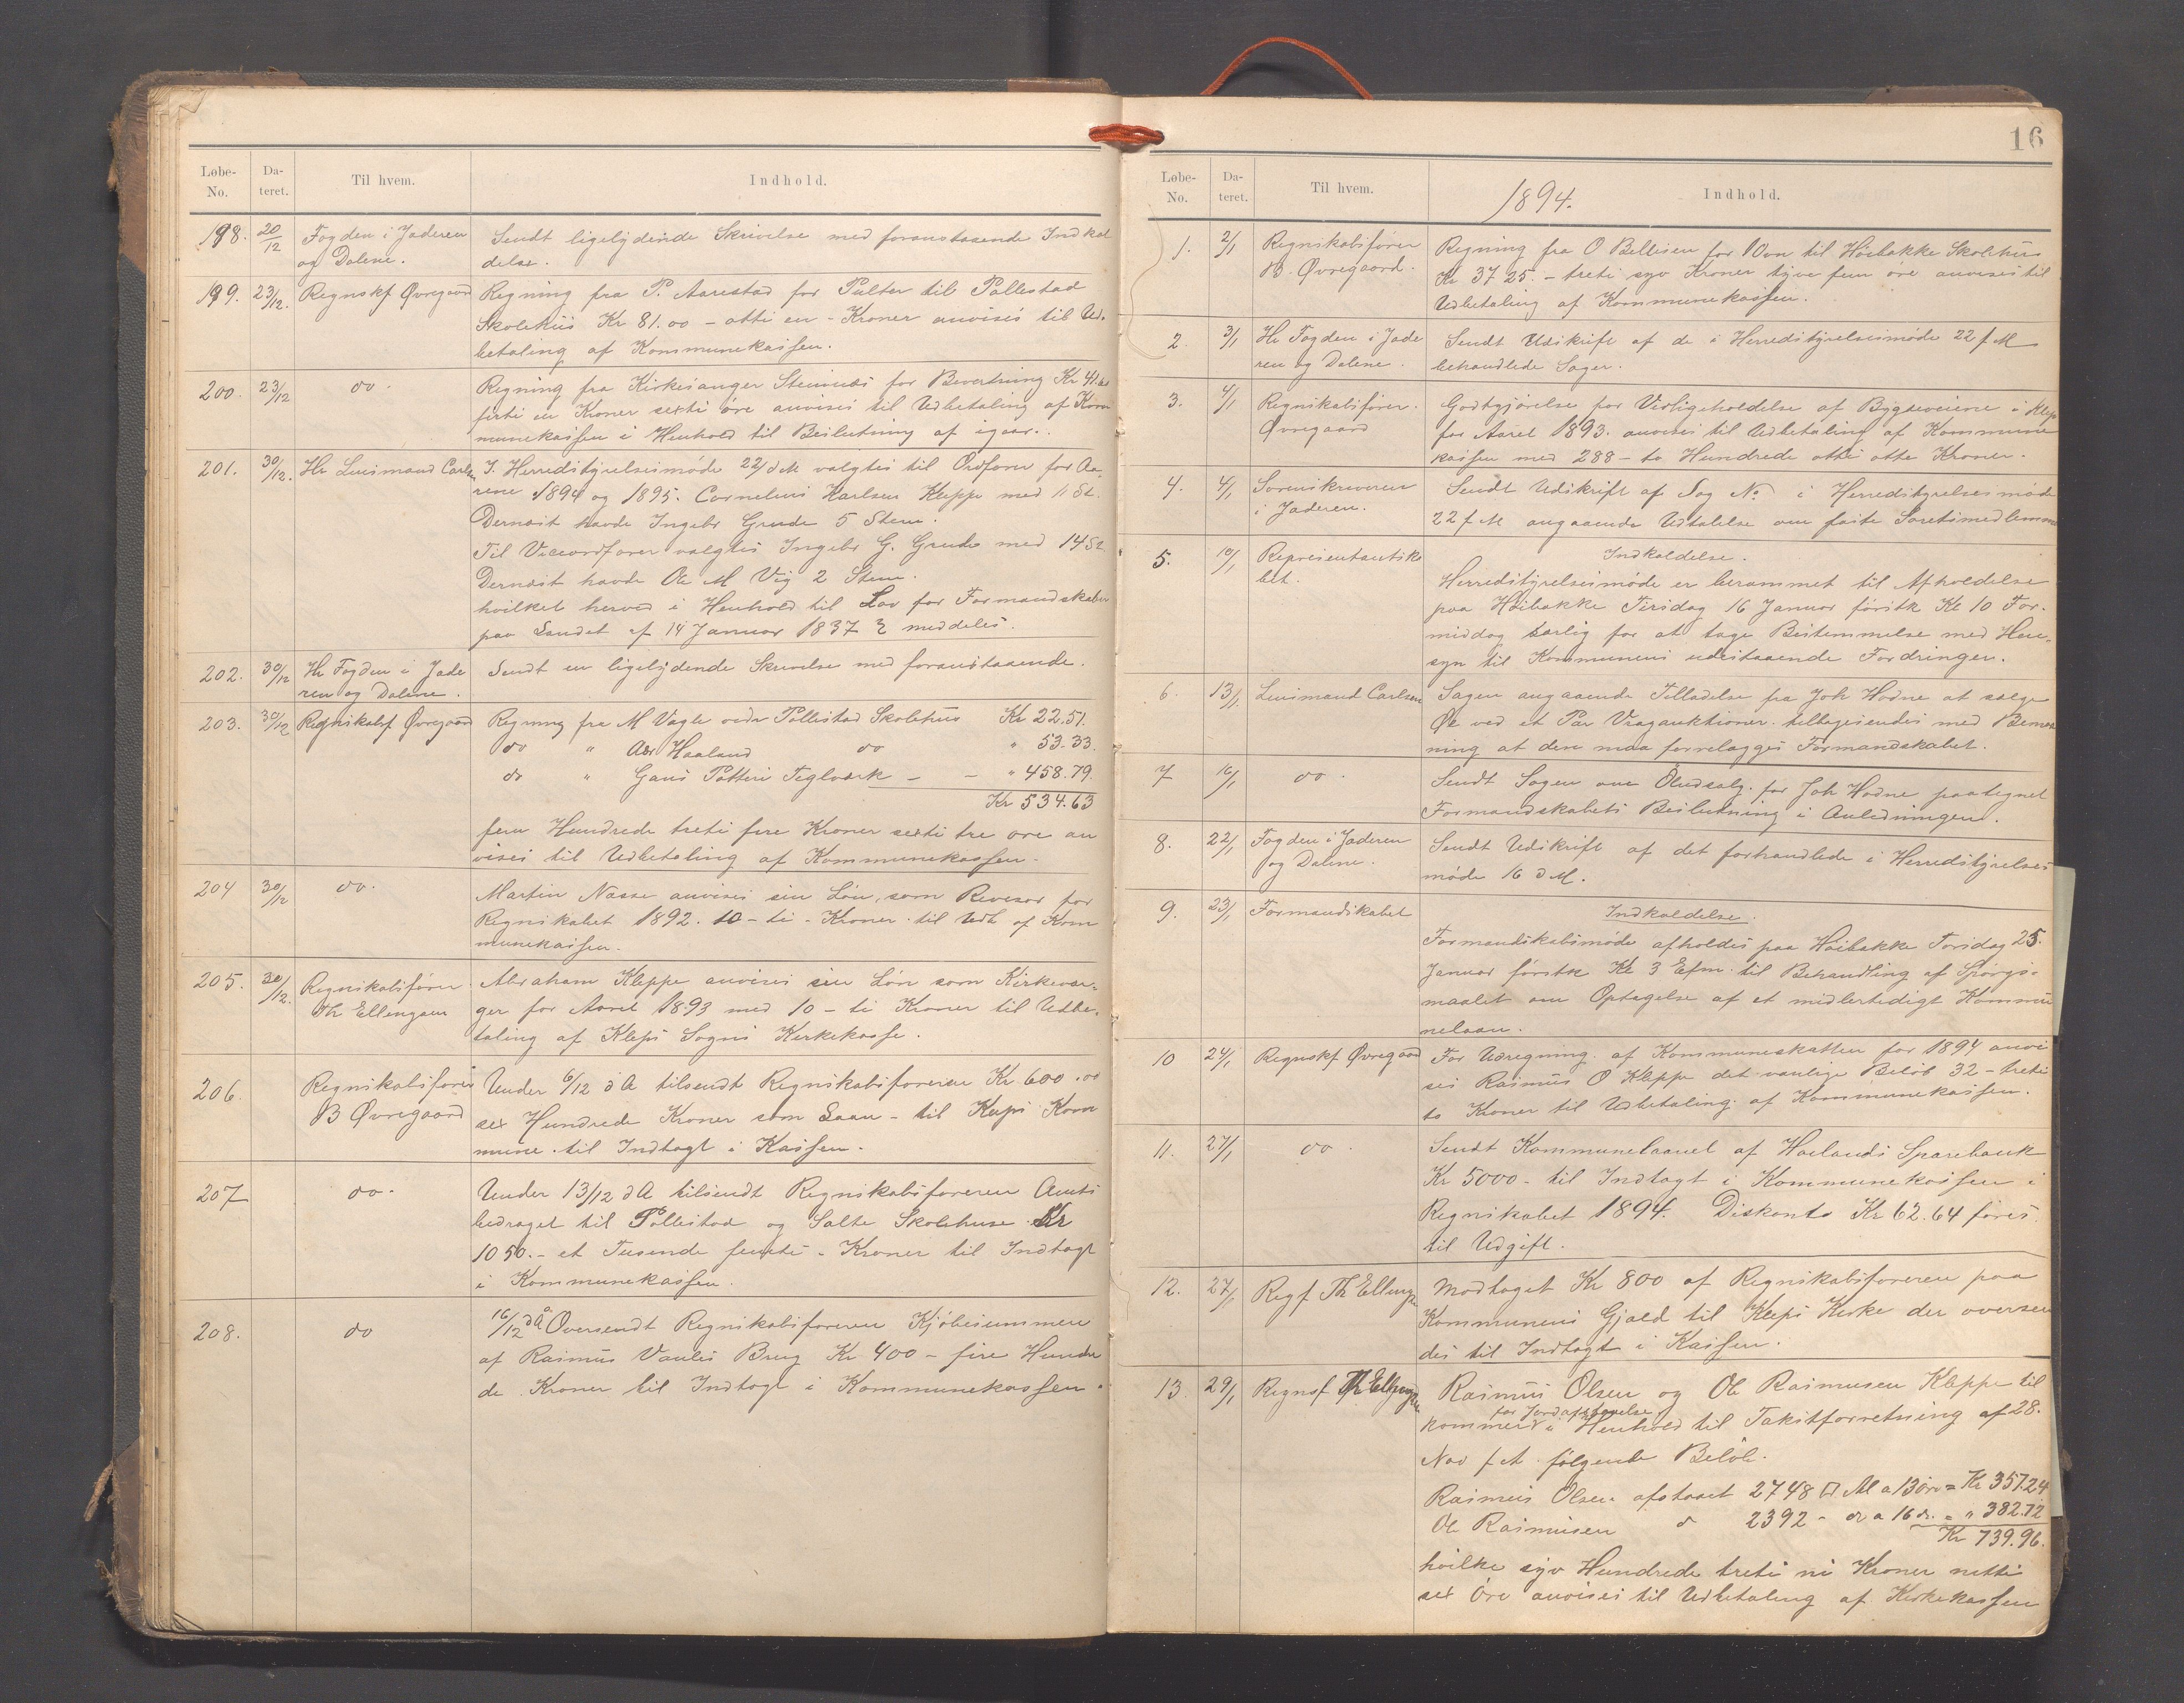 Løbe-No. Da-teret. Til hvem. Indhold.
198. 20/12 Fogden i Jæderen Sendt ligelydende Skrivelse med foranstaaende Indkal
og Dalene. delse.
199. 23/12. Regnskf Øvregaard Regning fra P. Aarestad for Pulter til Pollestad
Skolehus Kr 81.00 – otti en – Kroner anvises til Ud-
betaling af Kommunekassen.
200. 23/12 do. Regning fra Kirkesanger Steinnes for Bevertning Kr 41.60
firti en Kroner sexti øre anvises til Udbetaling af Kom
munekassen i Henhold til Beslutning af igaar.
201. 30/12. Hr Lensmand Carlsen I. Herredstyrelsesmøde 22/ d M valgtes til Ordfører for Aa-
rene 1894 og 1895. Cornelius Karlsen Kleppe med 11 St.
Dernæst havde Ingebr Grude 5 Stem.
Til Viceordfører valgtes Ingebr G. Grude med 14 St.
Dernæst havde Ole M Vig 2 Stem.
hvilket herved i Henhold til Lov for Formandskaber
paa Landet af 14 Januar 1837 § meddeles.
202. 30/12 Hr Fogden i Jæde Sendt en ligelydende Skrivelse med foranstaaende.
ren og Dalene.
203. 30/12 Regnskabsf Øvregaard Regning fra M Vagle vedr Pollestad Skolehus Kr 22.51.
do " Abr Haaland do " 53.33.
do " Gans Potteri Teglværk – – " 458.79.
Kr 534.63
fem Hundrede treti fire Kroner sexti tre øre an
vises til Udbetaling af Kommunekassen.
204 30/12 do. Martin Næsse anvises sin Løn, som Revisor for
Regnskabet 1892. 10 – ti – Kroner til Udb af Kom
munekassen.
205. 30/12. Regnskabsfører Abraham Kleppe anvises sin Løn som Kirkevær-
Th Ellengsen ger for Aaret 1893 med 10 – ti Kroner til Udbe-
taling af Kleps Sogns Kirkekasse.
206. Regnskabsfører Under 6/12 d A tilsendt Regnskabsføreren Kr 600.00
B Øvregaard sex Hundrede Kroner som Laan – til Kleps Kom
mune til Indtægt i Kassen.
207 do. Under 13/12 d A tilsendt Regnskabsføreren Amts
bedraget til Pollestad og Salte Skolehuse Kr
1050. – et Tusende femti – Kroner til Indtægt
i Kommunekassen.
208. do 16/12 d A Oversendt Regnskabsføreren Kjøbesummen
af Rasmus Vaules Brug Kr 400 – fire Hundre
de Kroner til Indtægt i Kommunekassen.
16
Løbe-No. Da-teret. Til hvem. 1894. Indhold.
1. 2/1 Regnskabsfører Regning fra O Bellesen for Ovn til Høibakke Skolehus
B. Øvregaard. Kr 37 25. – treti syv Kroner tyve fem øre anvises til
Udbetaling af Kommunekassen.
2. 3/1 Hr Fogden i Jæde Sendt Udskrift af de i Herredstyrelsesmøde 22 f M
ren og Dalene. behandlede Sager.
3. 4/1 Regnskabsfører. Godtgjørelse for Vedligeholdelse af Bygdeveiene i Klep
Øvregaard for Aaret 1893. anvises til Udbetaling af Kommune
kassen med 288 – to Hundrede otti otte Kroner.
4. 4/1 Sorenskriveren Sendt Udskrift af Sag No i Herredstyrelsesmøde
i Jæderen. 22 f M angaaende Udtalelse om faste Soretsmedlemme
5. 10/1 Repræsentantska Indkaldelse.
bet. Herredstyrelsesmøde er berammet til Afholdelse
paa Høibakke Tirsdag 16 Januar førstk Kl 10 For-
middag særlig for at tage Bestemmelse med Hen-
syn til Kommunens udestaaende Fordringer.
6. 13/1 Lensmand Carlsen Sagen angaaende Tilladelse fra Joh Hodne at sælge
Øl ved et Par Vragauktioner. tilbagesendes med Bemær
ning at den maa forrelægges Formandskabet.
7 16/1 do. Sendt Sagen om Øludsalg for Joh Hodne paategnet
Formandskabets Beslutning i Anledningen.
8. 22/1 Fogden i Jæderen Sendt Udskrift af det forhandlede i Herredstyrelses
og Dalene. møde 16 d M.
9. 23/1 Formandskabet Indkaldelse.
Formandskabsmøde afholdes paa Høibakke Torsdag 25.
Januar førstk Kl 3 Efm. til Behandling af Spørgs-
maalet om Optagelse af et midlertidigt Kommu
nelaan.
10 24/1 Regnskf Øvregaard For Udregning af Kommuneskatten for 1894 anvi
ses Rasmus O Kleppe det vanlige Beløb 32 – treti
to Kroner til Udbetaling af Kommunekassen.
11. 27/1 do. Sendt Kommunelaanet af Haalands Sparebank
Kr 5000 – til Indtægt i Kommunekassen i
Regnskabet 1894. Diskonto Kr 62.64 føres.
til Udgift.
12. 27/1 Regf Th Ellengsen Modtaget Kr 800 af Regnskabsføreren paa
Kommunens Gjæld til Kleps Kirke der oversen
des til Indtægt i Kassen.
13. 29/1 Regnsf Th Ellengsen Rasmus Olsen og Ole Rasmusen Kleppe til
for Jordafstaaelse
kommer i Henhold til Takstforretning af 28.
Nov f A følgende Beløb.
Rasmus Olsen afstaaet 2748 □ Al a 13 øre = Kr 357.24
Ole Rasmusen d 2392 – do a 16 do. = " 382.72
Kr 739.96.
hvilke syv Hundrede treti ni Kroner nitti
sex Øre anvises til Udbetaling af Kirkekassen